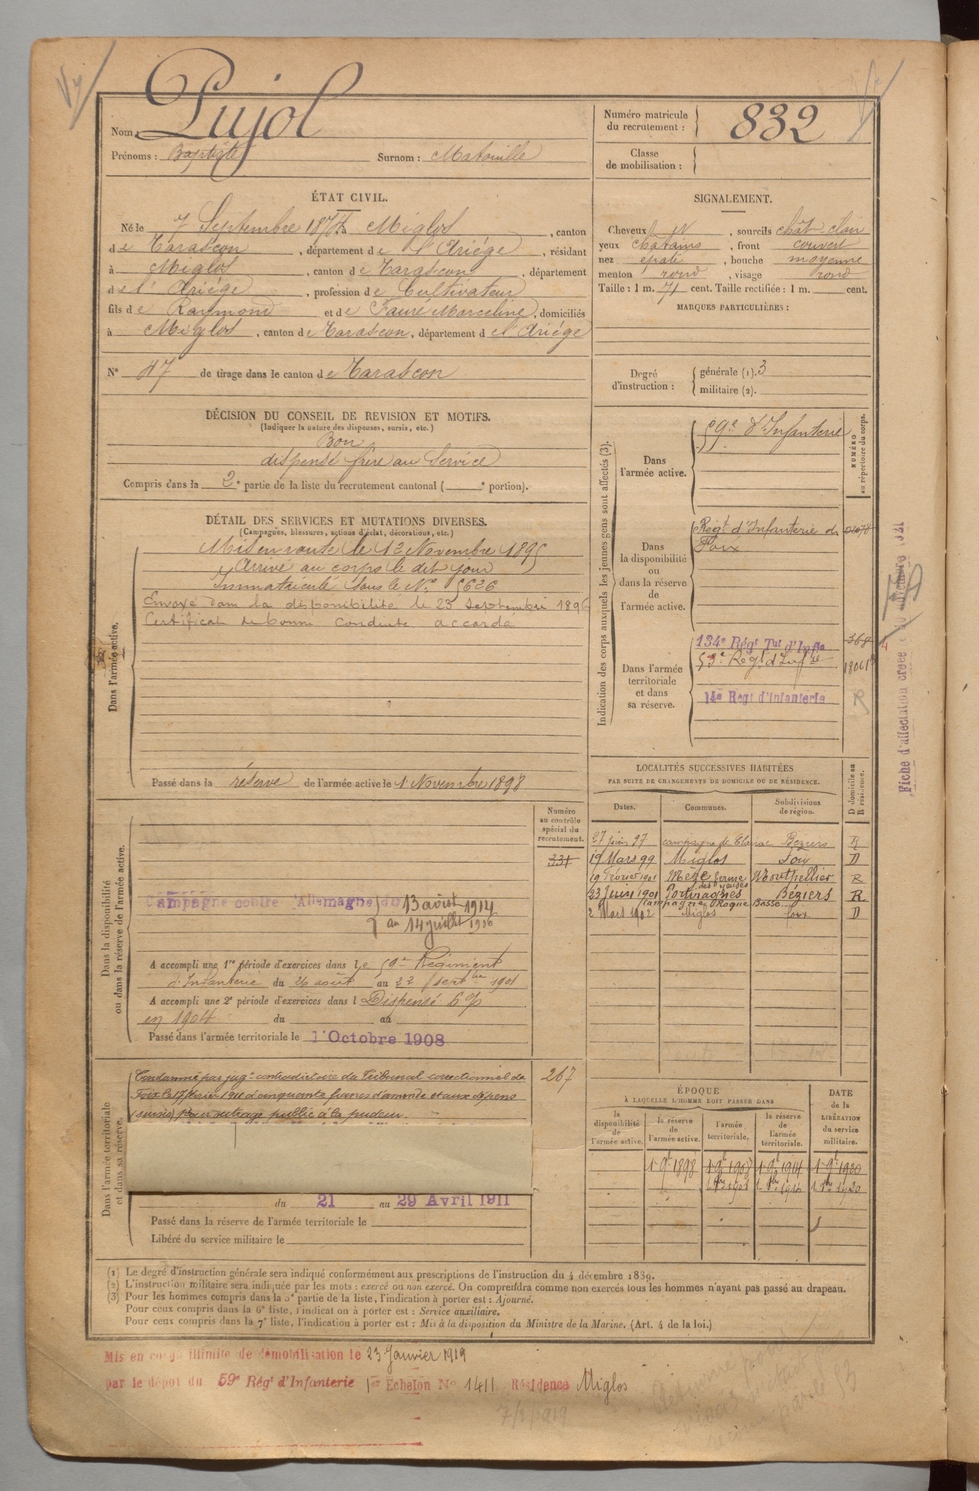 Nom : Pujol
Prénoms : Baptiste Surnom : Matouille
Numéro matricule du recrutement : 832
Classe de mobilisation :
ÉTAT CIVIL.
Né le 7 Septembre 1874 Miglos, canton
de Tarascon, département de l'Ariége, résidant
à Miglos, canton de Tarascon, département
de l'Ariége, profession de Cultivateur
fils de Raymond et de Faure Marceline, domiciliés
à Miglos, canton de Tarascon, département de l'Ariége
N° 47 de tirage dans le canton de Tarascon
SIGNALEMENT.
Cheveux , sourcils chât. clair
yeux châtains, front couvert
nez épaté, bouche moyenne
menton rond, visage rond
Taille : 1 m. 71 cent. Taille rectifiée : 1 m. cent.
MARQUES PARTICULIÈRES :
Degré d'instruction : générale (1). 3
militaire (2).
DÉCISION DU CONSEIL DE REVISION ET MOTIFS.
(Indiquer la nature des dispenses, sursis, etc.)
Bon
dispensé frère au Service
Compris dans la 2e partie de la liste du recrutement cantonal ( e portion).
DÉTAIL DES SERVICES ET MUTATIONS DIVERSES.
(Campagnes, blessures, actions d'éclat, décorations, etc.)
Dans l'armée active.
Mis en route le 12 Novembre 1895
Arrivé au corps le dit jour
Immatriculé sous le N° 5626
Envoyé dans la disponibilité le 23 septembre 1896
Certificat de bonne conduite accordé
Passé dans la réserve de l'armée active le 1 Novembre 1898
Indication des corps auxquels les jeunes gens sont affectés (3).
NUMÉRO au répertoire du corps.
Dans l'armée active.
59e d'Infanterie
Dans la disponibilité ou dans la réserve de l'armée active.
Régt d'Infanterie de
Foix
Dans l'armée territoriale et dans sa réserve.
134e Régt Tal d'Infie
53e Régt d'Inf
14e Régt d'Infanterie
R
LOCALITÉS SUCCESSIVES HABITÉES
PAR SUITE DE CHANGEMENTS DE DOMICILE OU DE RÉSIDENCE.
Dates. Communes. Subdivisions de région. D domicile ou R résidence.
27 Juin 97 campagne de Béziers R
19 Mars 99 Miglos Foix D
19 Février 1901 Mèze ferme Montpellier R
23 Juin 1901 Portiragnes Béziers R
campagne Roque Basse
2 Mars 1902 Miglos Foix D
Dans la disponibilité ou dans la réserve de l'armée active.
Numéro au contrôle spécial du recrutement.
331
Campagne contre l'Allemagne du 13 août 1914
au 14 juillet 1916
A accompli une 1re période d'exercices dans le 59e Régiment
d'Infanterie du 26 août au 22 Septbre 1901
A accompli une 2e période d'exercices dans l Dispensé 6 %
en 1904 du au
Passé dans l'armée territoriale le 1 Octobre 1908
Dans l'armée territoriale et dans sa réserve.
Condamné par jugt contradictoire du Tribunal correctionnel de
Foix le 17 février 1911 à cinquante francs d'amende et aux dépens
(sursis) pour outrage public à la pudeur.
267
du 21 au 29 Avril 1911
Passé dans la réserve de l'armée territoriale le
Libéré du service militaire le
ÉPOQUE
À LAQUELLE L'HOMME DOIT PASSER DANS
la disponibilité de l'armée active. la réserve de l'armée active. l'armée territoriale. la réserve de l'armée territoriale.
DATE de la LIBÉRATION du service militaire.
1 9t 1898 1 9t 1907 1 9t 1914 1 9t 1920
(1) Le degré d'instruction générale sera indiqué conformément aux prescriptions de l'instruction du 4 décembre 1889.
(2) L'instruction militaire sera indiquée par les mots : exercé ou non exercé. On comprendra comme non exercés tous les hommes n'ayant pas passé au drapeau.
(3) Pour les hommes compris dans la 5e partie de la liste, l'indication à porter est : Ajourné.
Pour ceux compris dans la 6e liste, l'indication à porter est : Service auxiliaire.
Pour ceux compris dans la 7e liste, l'indication à porter est : Mis à la disposition du Ministre de la Marine. (Art. 4 de la loi.)
Mis en congé illimité de démobilisation le 23 Janvier 1919
par le dépôt du 59e Régt d'Infanterie 1er Echelon N° 1411 Résidence Miglos
Fiche d'affectation créée le